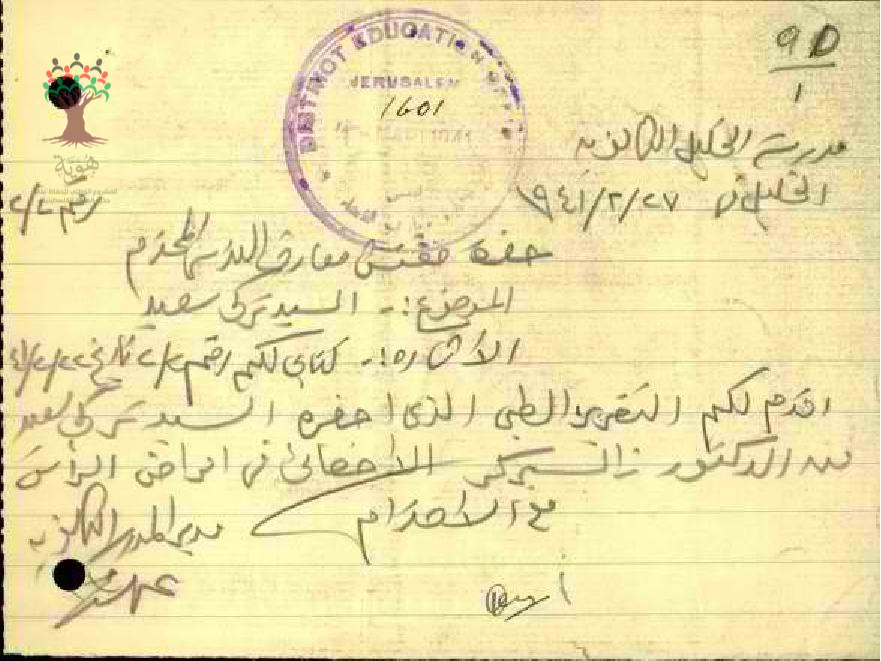 9 D
1
DISTRICT EDUCATION OFFICE
JERUSALEM
1601
هوية
مدرسة الخليل الثانوية
الخليل في ٢٧/٢/٩٤١
رقم ٢/٢
حضرة مفتش معارف القدس المحترم
الموضوع:- السيد تركي سعيد
الأشارة:- كتابي لكم رقم ٢/٢ تاريخ ٢٢/٢/٤١
اقدم لكم التقرير الطبي الذي احضره السيد تركي سعيد
من الدكتور الأخصائي في امراض الرأس
مع الاحترام
مدير المدرسة الثانوية